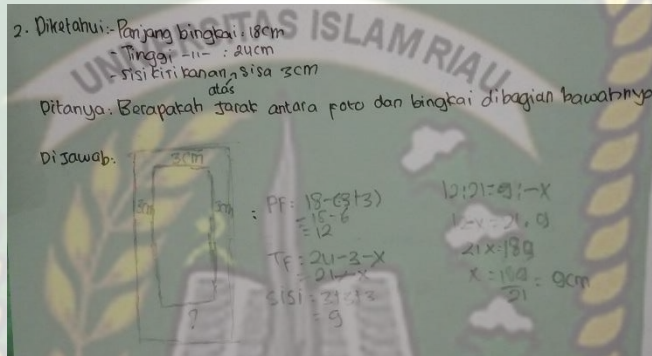 UNIVERSITAS ISLAM RIAU
2. Diketahui:- Panjang bingkai : 18cm
- Tinggi -11- : 24cm
- Sisi kiri kanan, sisa 3cm
atas
Ditanya: Berapakah Jarak antara foto dan bingkai dibagian bawahnya
Dijawab:
3cm
3cm
3cm
?
: PF = 18-(3+3)
= 18-6
= 12
TF = 24-3-x
= 21-x
Sisi = 3+3+3
= 9
12:21=9:-x
12-x=21.9
21x=189
x=189/21=9cm